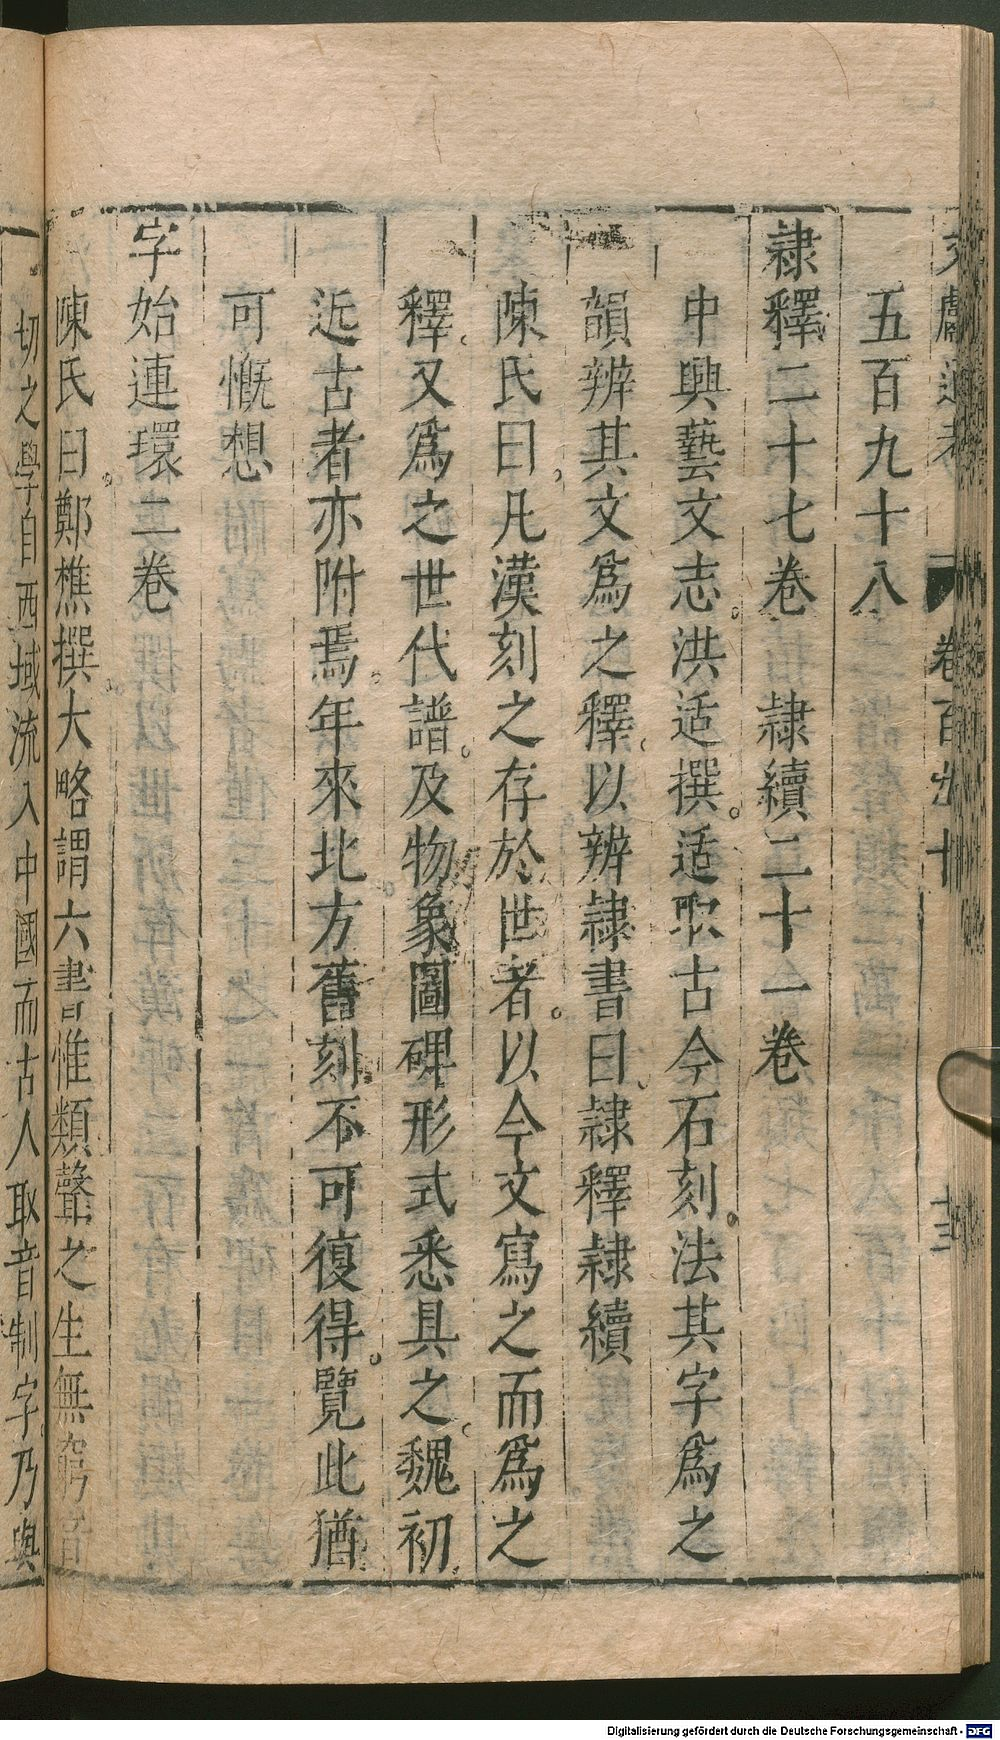 文獻通考 卷百九十 十三
五百九十八
隷釋二十七卷 隷續二十一卷
中興藝文志洪适撰适取古今石刻法其字爲之
韻辨其文爲之釋以辨隷書曰隷釋隷續
陳氏曰凡漢刻之存於世者以今文寫之而爲之
釋又爲之世代譜及物象圖碑形式悉具之魏初
近古者亦附焉年來北方舊刻不可復得覽此猶
可慨想
字始連環二卷
陳氏曰鄭樵撰大略謂六書惟類聲之生無窮音
切之學自西域流入中國而古人取音制字乃與
Digitalisierung gefördert durch die Deutsche Forschungsgemeinschaft - DFG